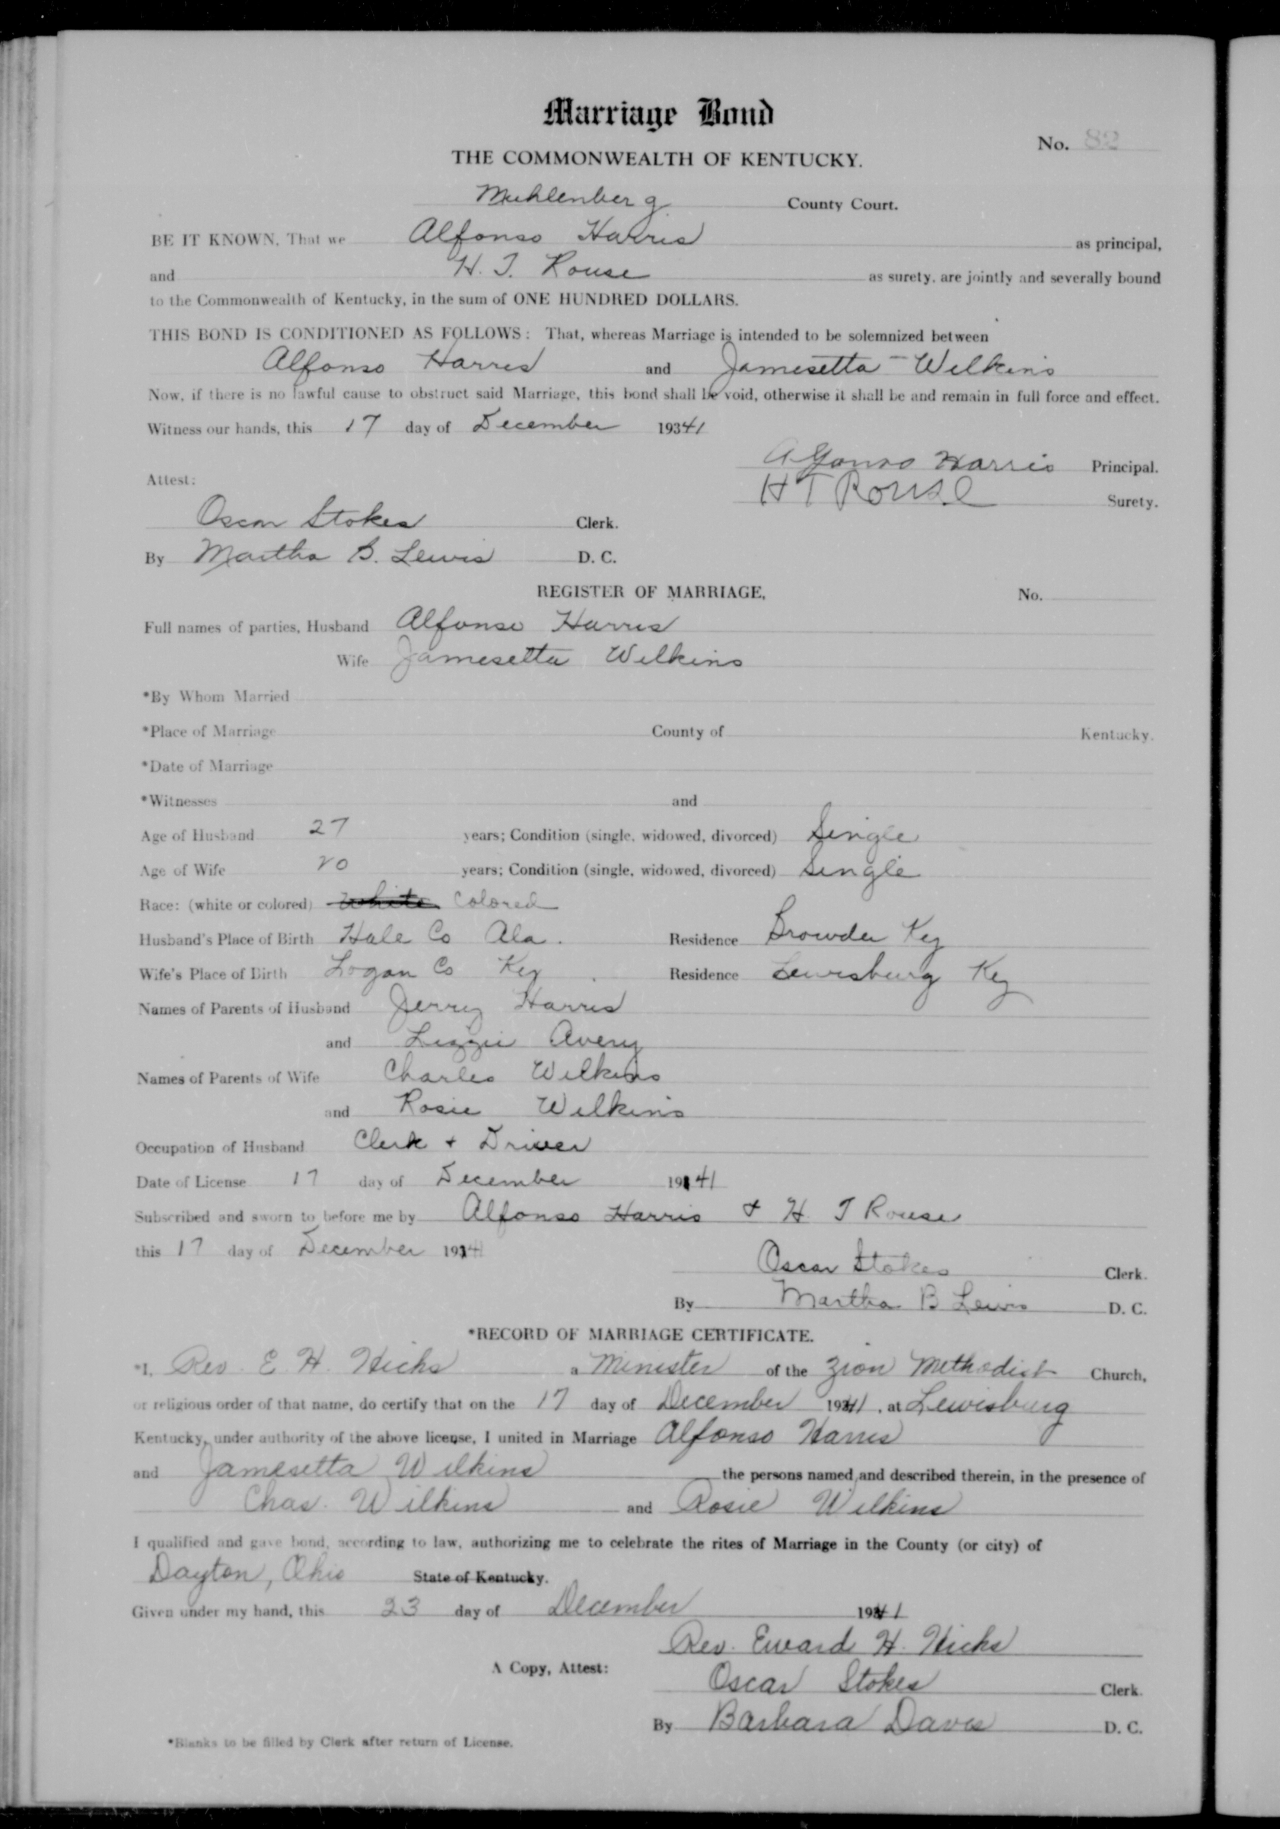 Marriage Bond
No. 82
THE COMMONWEALTH OF KENTUCKY.
Muhlenberg County Court.
BE IT KNOWN, That we Alfonso Harris as principal,
and H. T. Rouse as surety, are jointly and severally bound
to the Commonwealth of Kentucky, in the sum of ONE HUNDRED DOLLARS.
THIS BOND IS CONDITIONED AS FOLLOWS: That, whereas Marriage is intended to be solemnized between
Alfonso Harris and Jamesetta Wilkins
Now, if there is no lawful cause to obstruct said Marriage, this bond shall be void, otherwise it shall be and remain in full force and effect.
Witness our hands, this 17 day of December 1941
Alfonso Harris Principal.
Attest:
H T Rouse Surety.
Oscar Stokes Clerk.
By Martha B. Lewis D. C.
REGISTER OF MARRIAGE, No.
Full names of parties, Husband Alfonso Harris
Wife Jamesetta Wilkins
*By Whom Married
*Place of Marriage County of Kentucky.
*Date of Marriage
*Witnesses and
Age of Husband 27 years; Condition (single, widowed, divorced) Single
Age of Wife 20 years; Condition (single, widowed, divorced) Single
Race: (white or colored) white Colored
Husband's Place of Birth Hale Co Ala. Residence Browder Ky
Wife's Place of Birth Logan Co Ky. Residence Lewisburg Ky
Names of Parents of Husband Jerry Harris
and Lizzie Avery
Names of Parents of Wife Charles Wilkins
and Rosie Wilkins
Occupation of Husband Clerk + Driver
Date of License 17 day of December 1941
Subscribed and sworn to before me by Alfonso Harris & H T Rouse
this 17 day of December 1941
Oscar Stokes Clerk.
By Martha B Lewis D. C.
*RECORD OF MARRIAGE CERTIFICATE.
*I, Rev. E H. Hicks a Minister of the Zion Methodist Church,
or religious order of that name, do certify that on the 17 day of December 1941, at Lewisburg
Kentucky, under authority of the above license, I united in Marriage Alfonso Harris
and Jamesetta Wilkins the persons named and described therein, in the presence of
Chas. Wilkins and Rosie Wilkins
I qualified and gave bond, according to law, authorizing me to celebrate the rites of Marriage in the County (or city) of
Dayton, Ohio State of Kentucky.
Given under my hand, this 23 day of December 1941
Rev. Eward H. Hicks
A Copy, Attest: Oscar Stokes Clerk.
By Barbara Davis D. C.
*Blanks to be filled by Clerk after return of License.